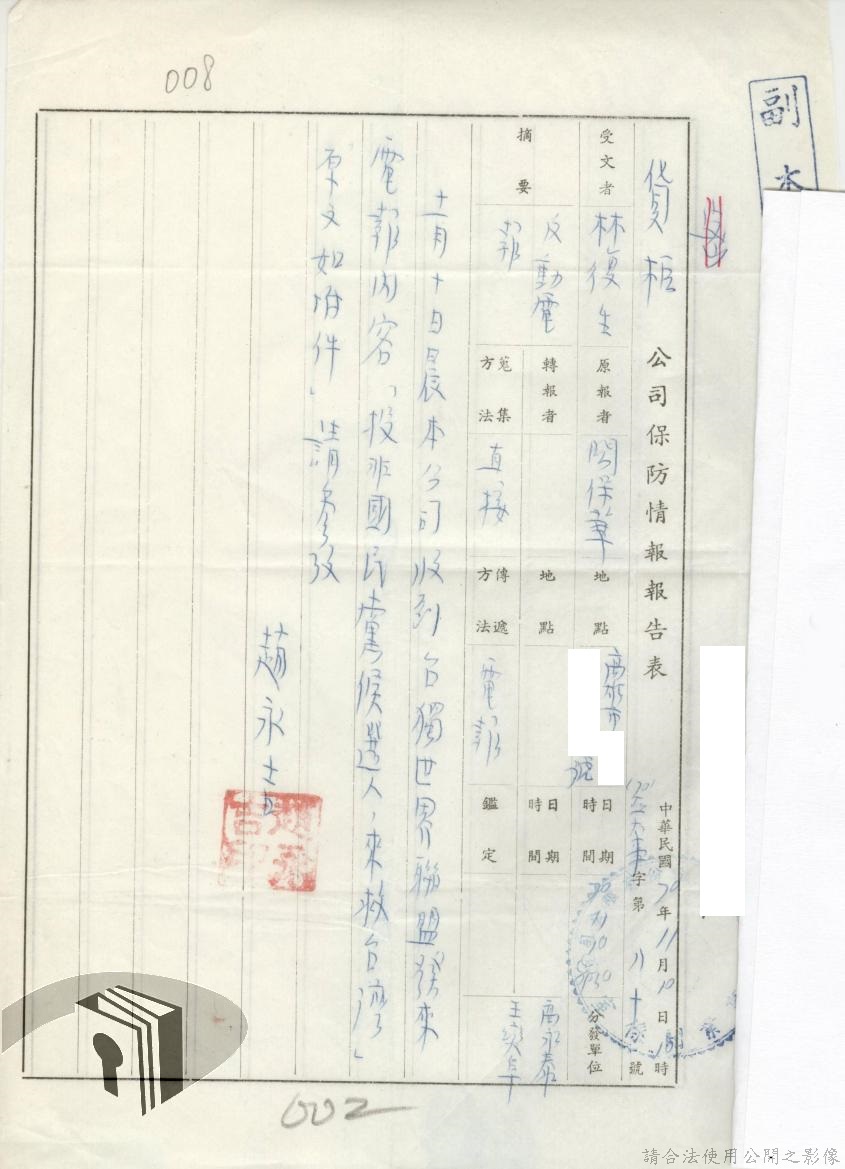 008
副本
貨柜 公司保防情報報告表
中華民國70年11月10日 時
字第 號
受文者 林復生
原報者 關保華
地點 高雄市 號
日期時間 70 11 10
分發單位
摘要 反動電報
轉報者
地點
日期時間
高永泰
蒐集方法 直接
傳遞方法 電報
鑑定
十一月十日晨本公司收到台獨世界聯盟發來
電報內容「投非國民黨候選人,來救台灣」
原文如附件」請參攷
趙永吉
002
請合法使用公開之影像